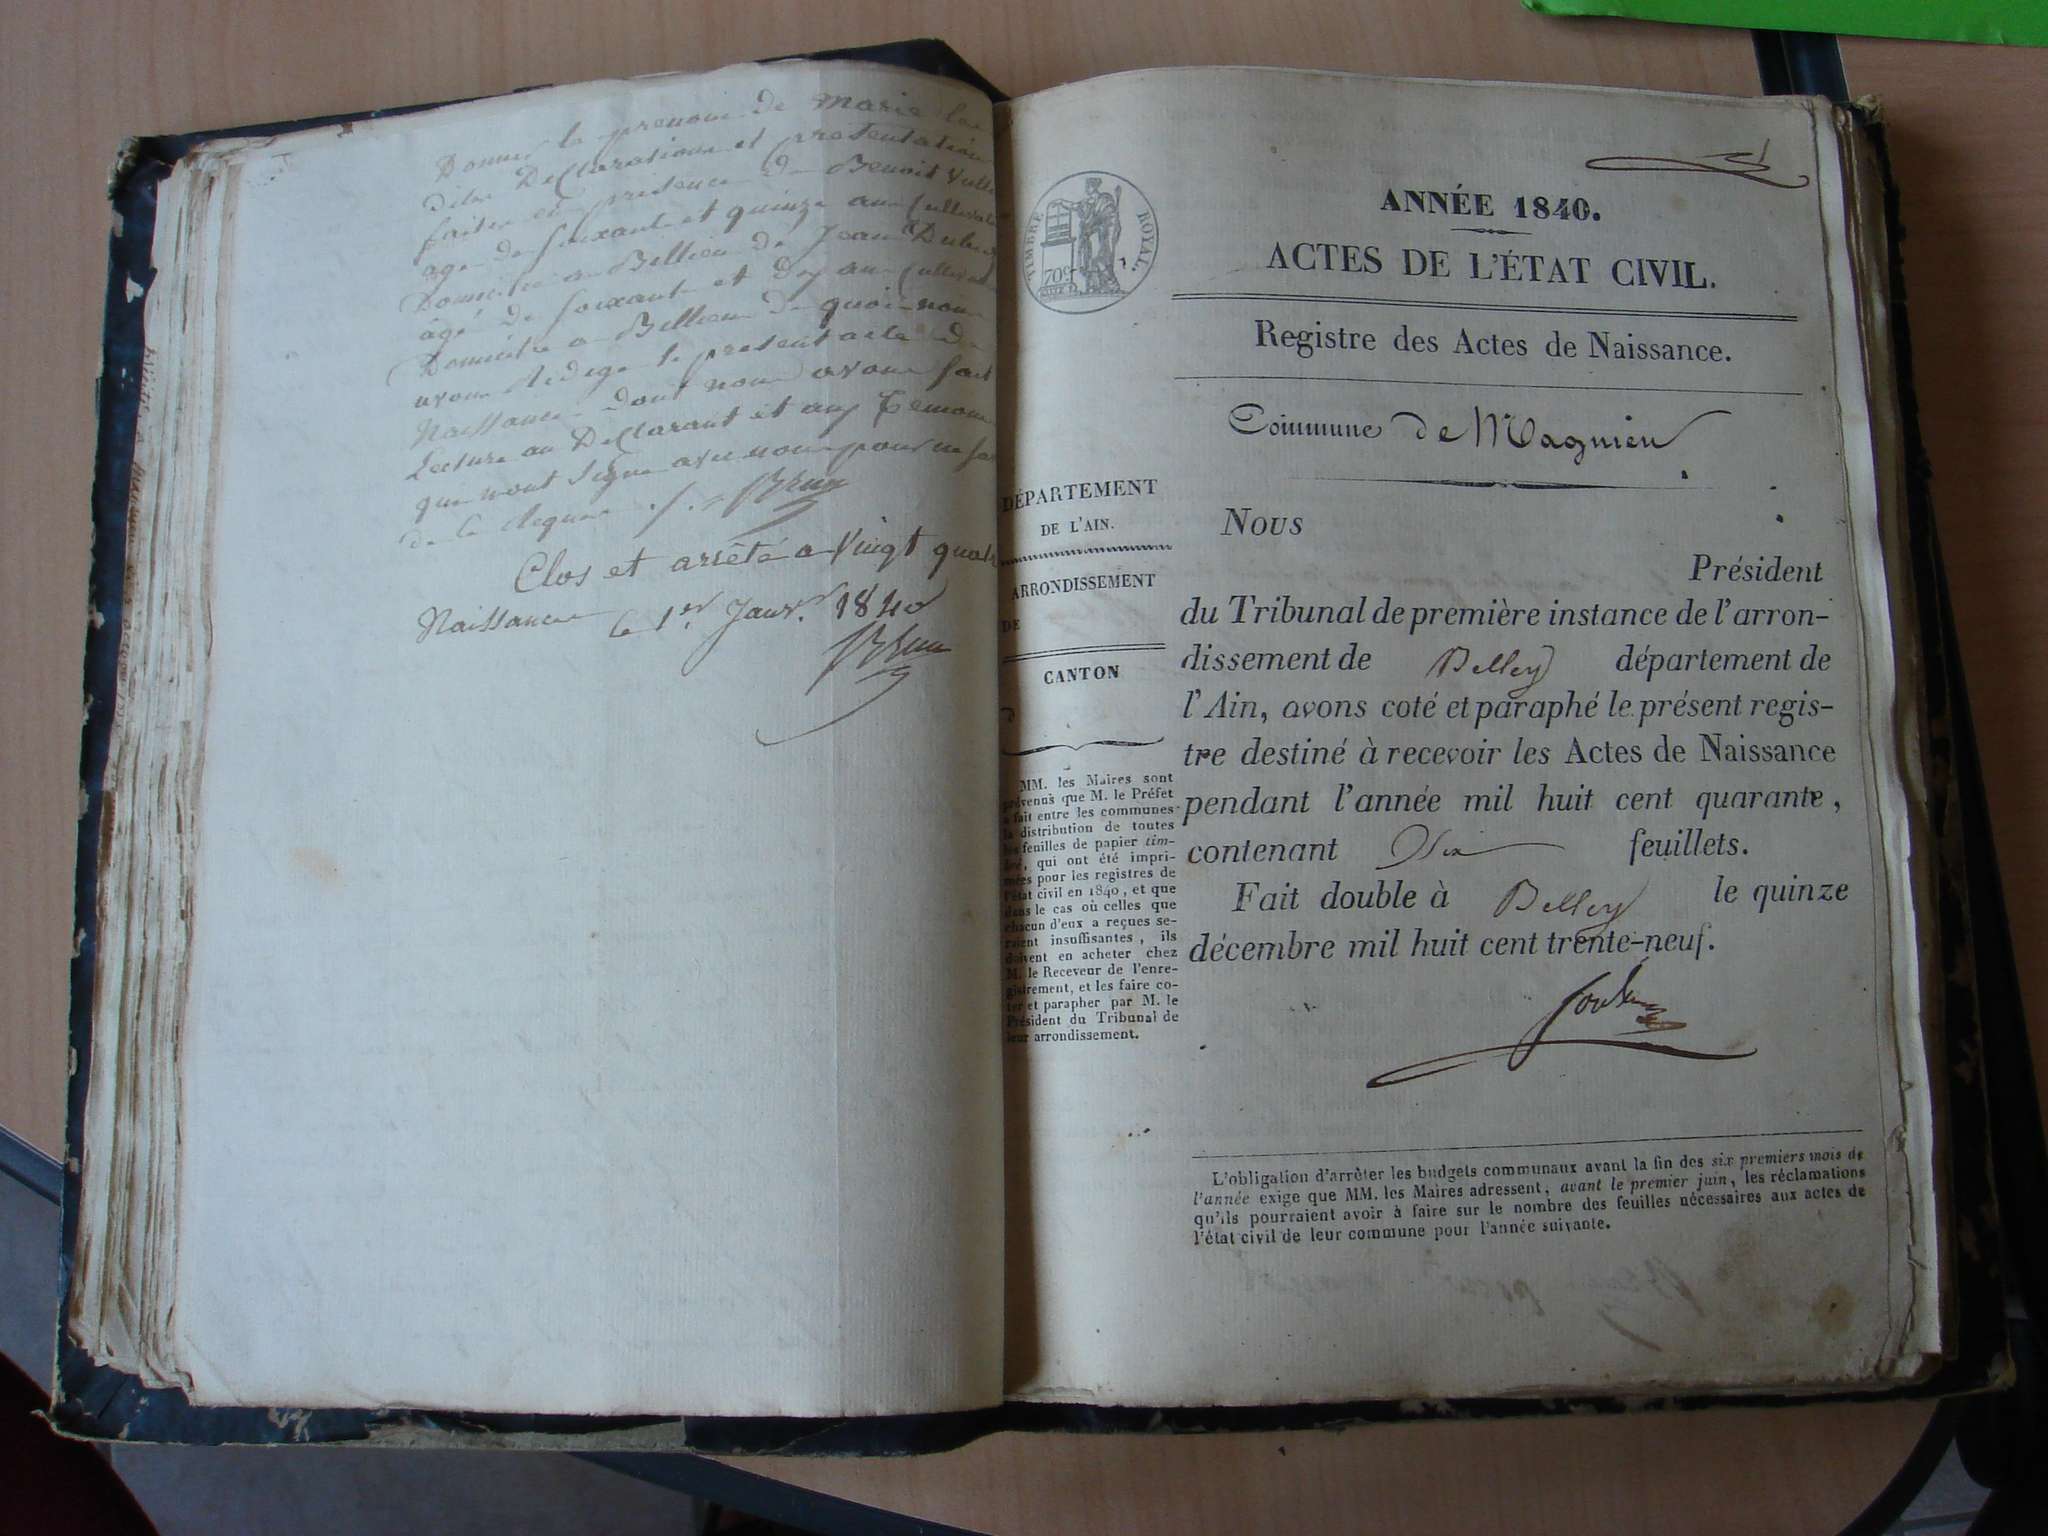 Donner le prenom de Marie les
dites Declarations et presentation
faites en presence de Benoit
agé de soixante et quinze ans
Domicilié a Billieu de Jean
âgé de soixante et dix ans
Domicilié a Billieu de quoi nous
avons redigé le present acte de
Naissance dont nous avons fait
Lecture au Declarant et aux Temoins
qui n'ont signé avec nous pour ne
de ce Requis Brun
Clos et arrêté a Vingt quatre
Naissances le 1er Janv. 1840
Brun
ANNÉE 1840.
ACTES DE L'ÉTAT CIVIL.
Registre des Actes de Naissance.
Commune de Magnieu
TIMBRE ROYAL.
70c
DÉPARTEMENT
DE L'AIN.
ARRONDISSEMENT
DE
CANTON
MM. les Maires sont
prévenus que M. le Préfet
a fait entre les communes
la distribution de toutes
les feuilles de papier tim-
bré, qui ont été impri-
mées pour les registres de
l'état civil en 1840, et que
dans le cas où celles que
chacun d'eux a reçues se-
raient insuffisantes, ils
doivent en acheter chez
M. le Receveur de l'enre-
gistrement, et les faire co-
ter et parapher par M. le
Président du Tribunal de
leur arrondissement.
Nous
Président
du Tribunal de première instance de l'arron-
dissement de Belley département de
l'Ain, avons coté et paraphé le présent regis-
tre destiné à recevoir les Actes de Naissance
pendant l'année mil huit cent quarante,
contenant feuillets.
Fait double à Belley le quinze
décembre mil huit cent trente-neuf.
L'obligation d'arrêter les budgets communaux avant la fin des six premiers mois de
l'année exige que MM. les Maires adressent, avant le premier juin, les réclamations
qu'ils pourraient avoir à faire sur le nombre des feuilles nécessaires aux actes de
l'état civil de leur commune pour l'année suivante.